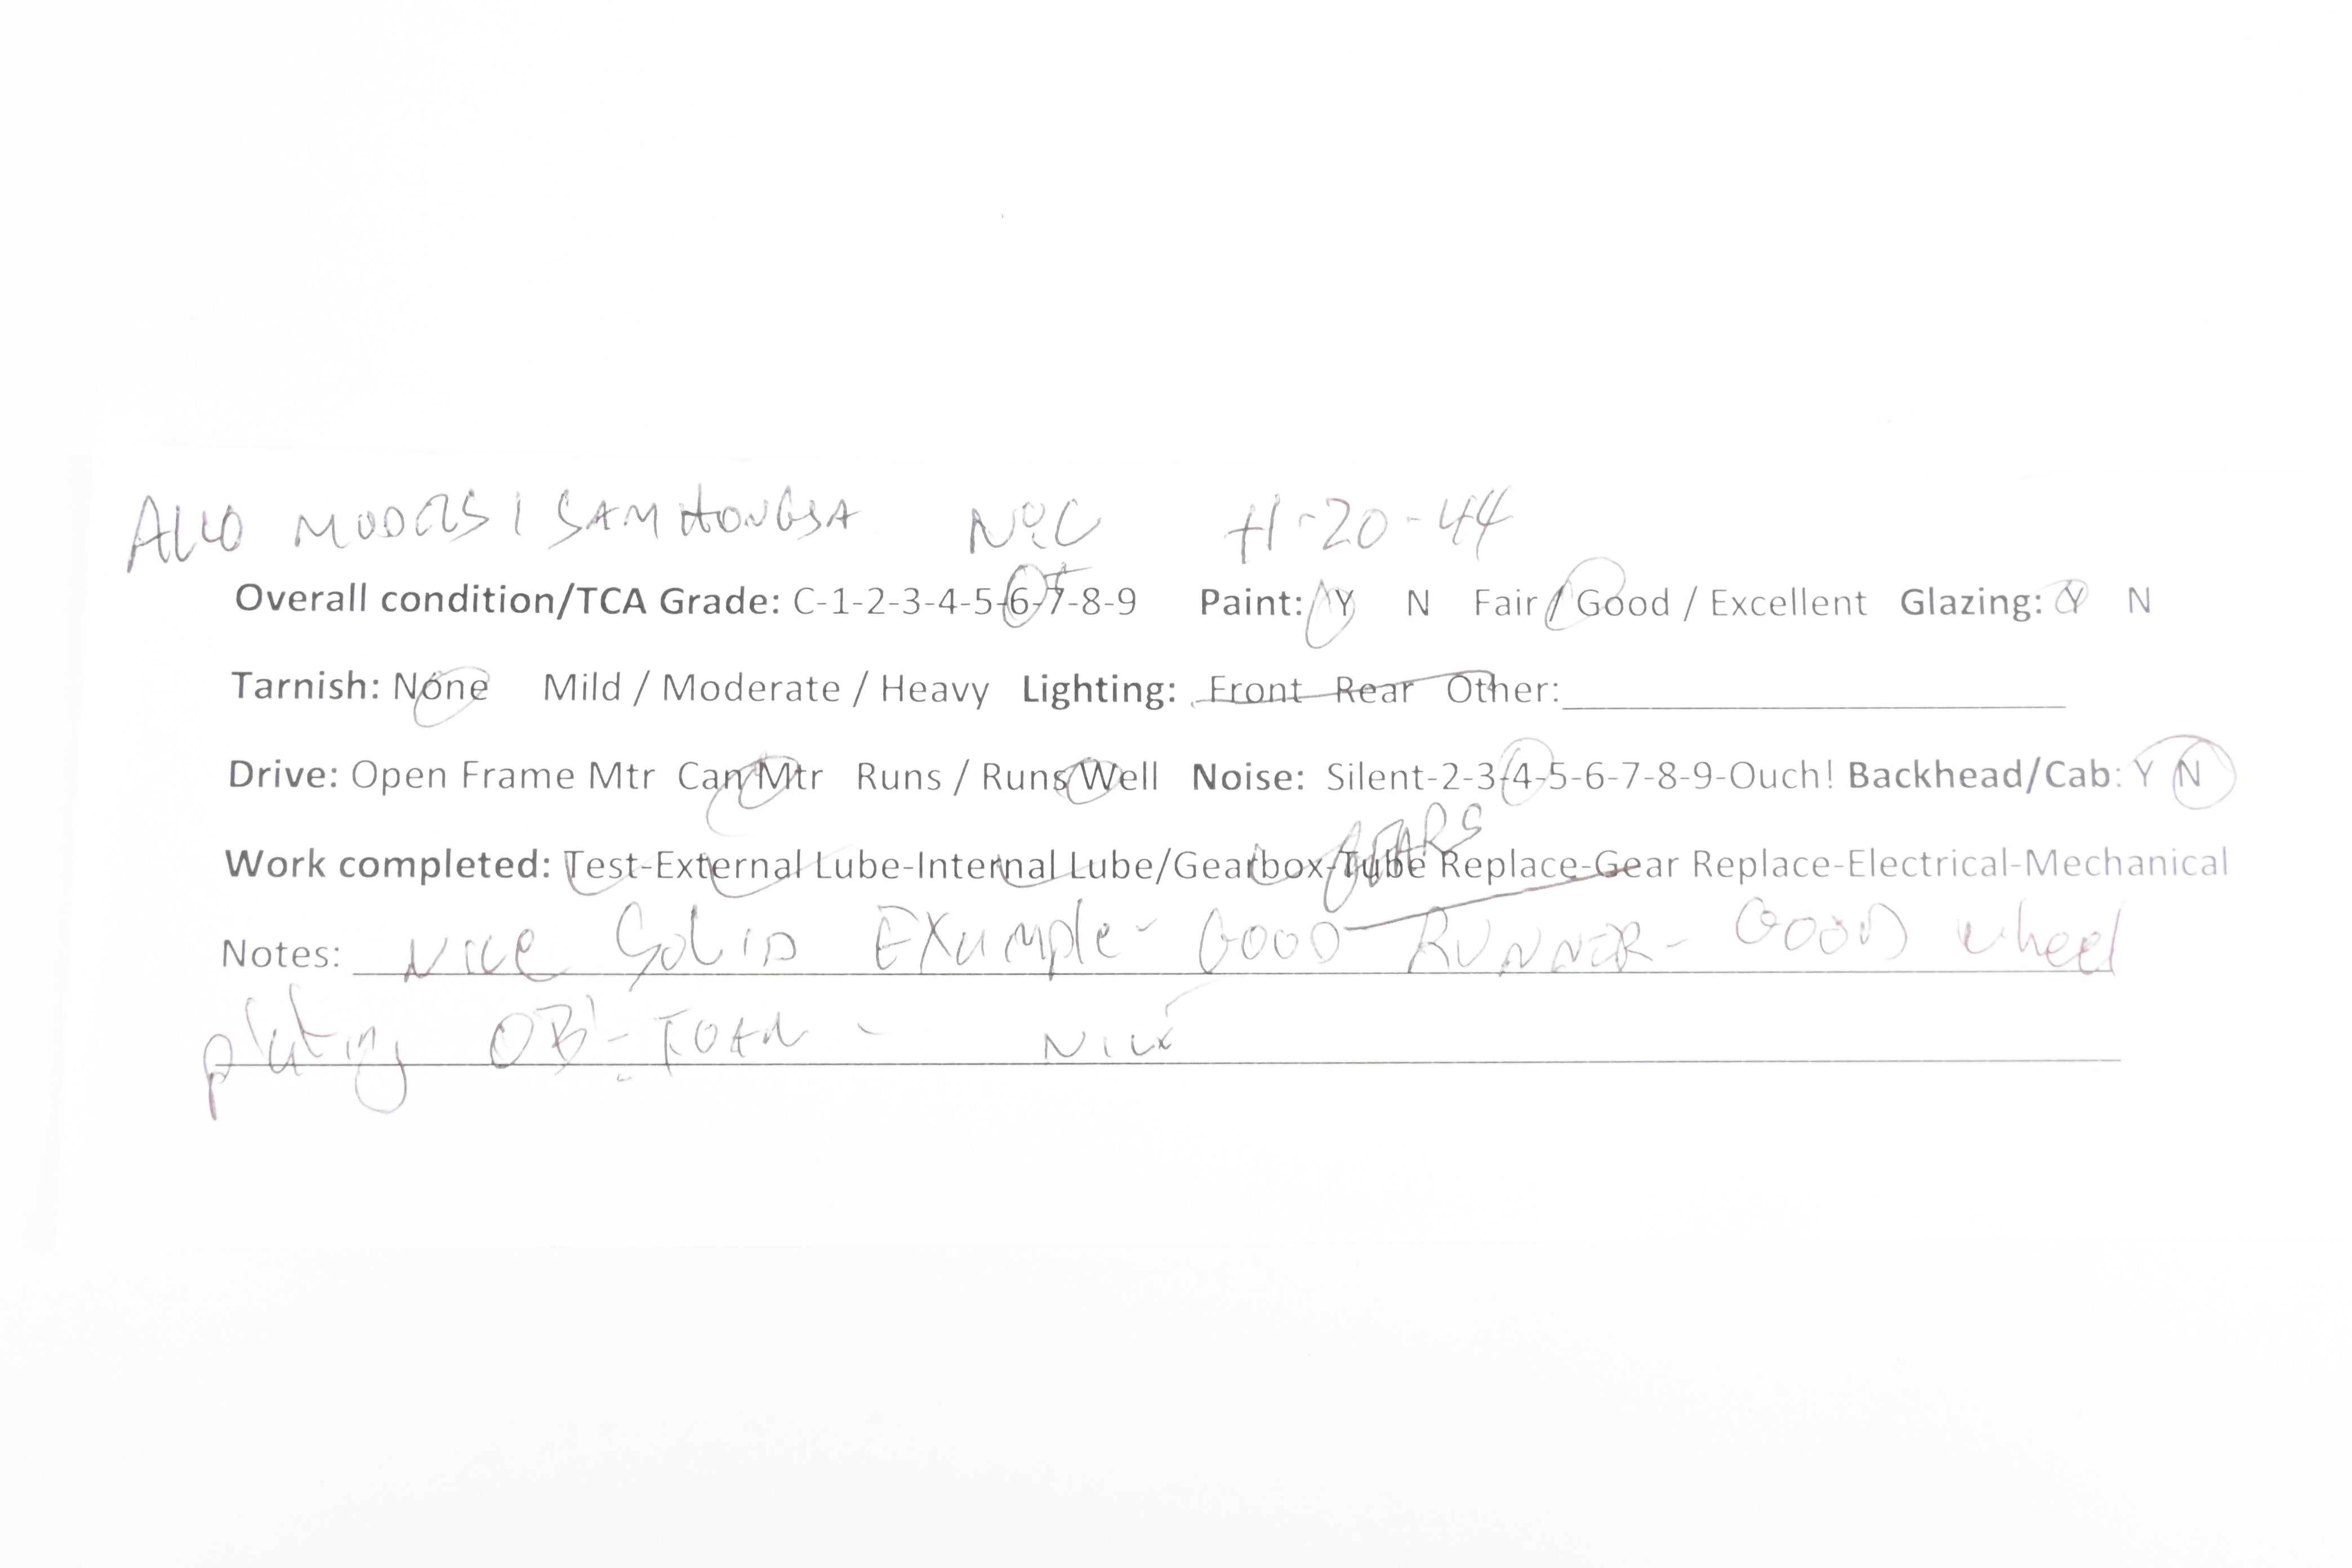 ALCO MODELS / SAMHONGSA N&C H-20-44
Overall condition/TCA Grade: C-1-2-3-4-5-6-7-8-9 Paint: Y N Fair / Good / Excellent Glazing: Y N
Tarnish: None Mild / Moderate / Heavy Lighting: Front Rear Other:
Drive: Open Frame Mtr Can Mtr Runs / Runs Well Noise: Silent-2-3-4-5-6-7-8-9-Ouch! Backhead/Cab: Y N
Work completed: Test-External Lube-Internal Lube/Gearbox-Tube Replace-Gear Replace-Electrical-Mechanical
Notes: NICE SOLID EXAMPLE - GOOD RUNNER - GOOD wheel
plating OB - FOAM - NICE